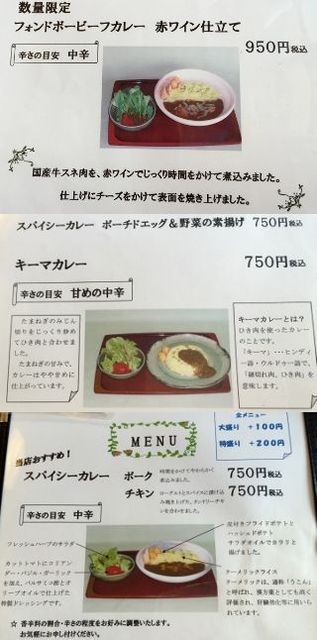 数量限定
フォンドボービーフカレー 赤ワイン仕立て
950円税込
辛さの目安 中辛
国産牛スネ肉を、赤ワインでじっくり時間をかけて煮込みました。
仕上げにチーズをかけて表面を焼き上げました。
スパイシーカレー ポーチドエッグ&野菜の素揚げ 750円税込
キーマカレー 750円税込
辛さの目安 甘めの中辛
たまねぎのみじん
切りをじっくり炒め
てひき肉と合わせま
した。
たまねぎの甘みで、
カレーはやや甘めに
仕上がっています。
キーマカレーとは?
ひき肉を使ったカレー
のことです。
「キーマ」・・・ヒンディ
ー語・ウルドゥー語で、
「細切れ肉、ひき肉」を
意味します。
全メニュー
大盛り +100円
特盛り +200円
MENU
当店おすすめ!
スパイシーカレー ポーク
時間をかけてやわらかく
煮込みました。
750円税込
チキン
ヨーグルトとスパイスに漬け込
み焼き上げた、タンドリーチキ
ンを合わせました。
750円税込
辛さの目安 中辛
フレッシュハーブのサラダ
カットトマトにコリアン
ダー・バジル・ガーリック
を加え、バルサミコ酢とオ
リーブオイルで仕上げた
特製ドレッシングです。
皮付きフライドポテトと
ハッシュドポテト
サラダオイルでカラリと
揚げました。
ターメリックライス
ターメリックは、通称「うこん」
と呼ばれ、漢方薬としても高く
評価され、肝臓強化等に用いら
れています。
☆ 香辛料の割合・辛さの程度をお好みに調整いたします。
お気軽にお申し付けください。